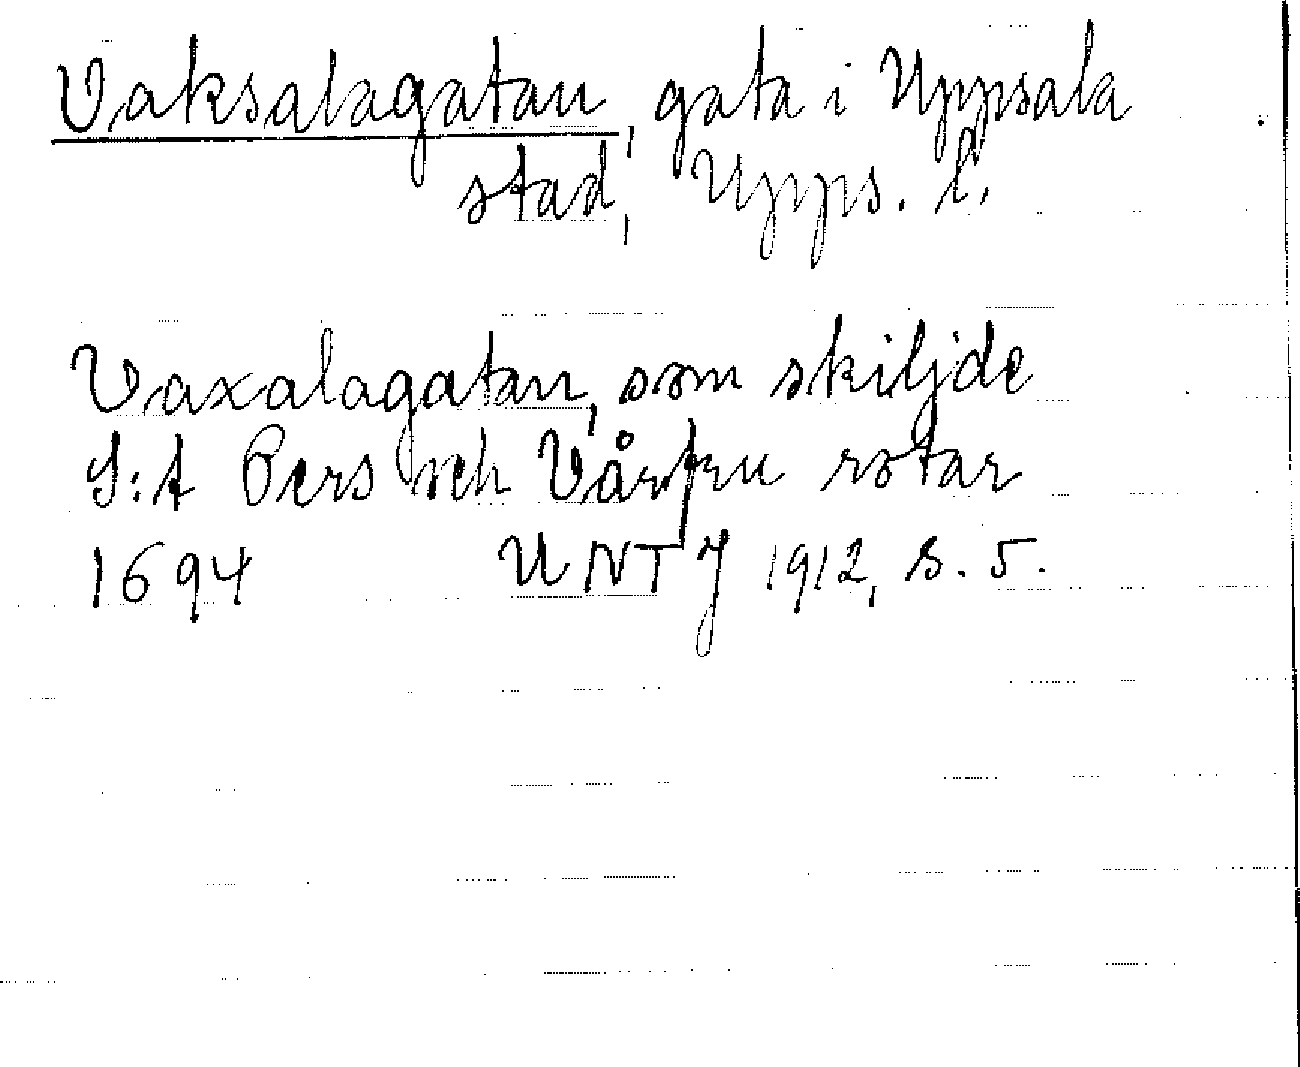 Vaksalagatan, gata i Uppsala
stad, Upps. l.
Vaxalagatan, som skiljde
S:t Pers och Vårfru rotar
1694 UNT J 1912, s. 5.